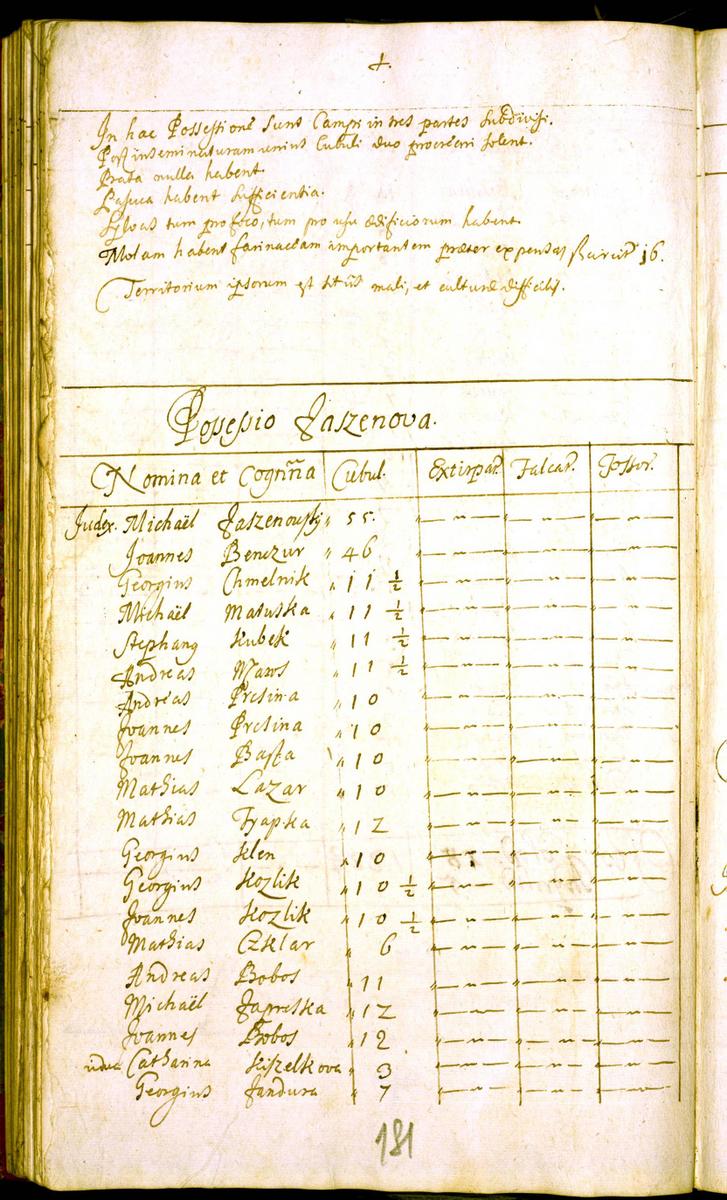 In hac Possessione Sunt Campi in tres partes subdivisi.
Post inseminaturam unius Cubuli duo procreeri solent.
Prata nulla habent.
Pascua habent sufficientia.
Sylvas tum pro foco, tum pro usu ædificiorum habent.
Molam habent farinaceam importantem præter expensas 16.
Territorium ipsorum est mali, et culturæ difficilis.
Possessio Jaszenova.
Nomina et Cognña Cubul. Extirpat. Falcat. Fossor.
Judex. Michaël Jaszenouszky 55.
Joannes Benczur 46
Georgius Chmelnik 11 ½
Michaël Matuska 11 ½
Stephang Kubek 11 ½
Andreas 11 ½
Andreas Presina 10
Joannes Presina 10
Joannes Basta 10
Mathias Lazar 10
Mathias 12
Georgius Klen 10
Georgius Kozlik 10 ½
Joannes Kozlik 10 ½
Mathias Czklar 6
Andreas Bobos 11
Michaël Japreska 12
Joannes Bobos 12
Catharina Kiszelkova 3
Georgius Jandura 7
181